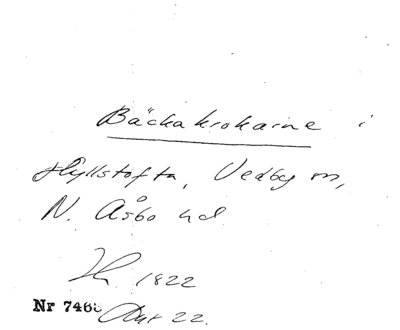 Bäckakrokarne i
Hyllstofta, Vedby sn,
N. Åsbo hd
1822
Nr 746
22.